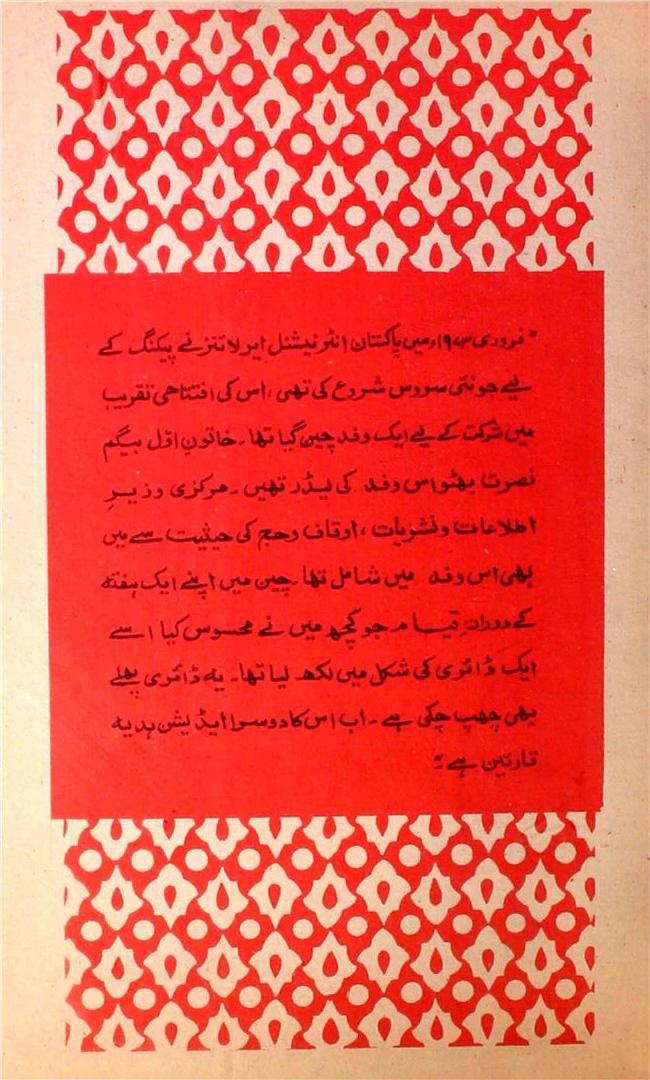 "فروری ۱۹۷۳ء میں پاکستان انٹرنیشنل ایرلائنز نے پیکنگ کے
لیے جو نئی سروس شروع کی تھی، اس کی افتتاحی تقریب
میں شرکت کے لیے ایک وفد چین گیا تھا۔ خاتونِ اوّل بیگم
نصرت بھٹو اس وفد کی لیڈر تھیں۔ مرکزی وزیرِ
اطلاعات و نشریات، اوقاف و حج کی حیثیت سے میں
بھی اس وفد میں شامل تھا۔ چین میں اپنے ایک ہفتہ
کے دورانِ قیام جو کچھ میں نے محسوس کیا اسے
ایک ڈائری کی شکل میں لکھ لیا تھا۔ یہ ڈائری پہلے
بھی چھپ چکی ہے۔ اب اس کا دوسرا ایڈیشن ہدیہ
قارئین ہے۔"